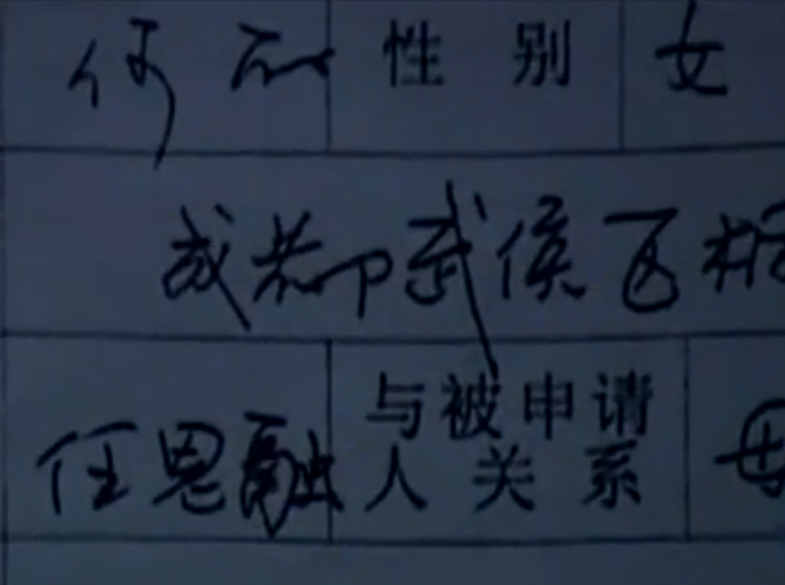 何 性别 女
成都武侯区
任思融 与被申请
人关系 母